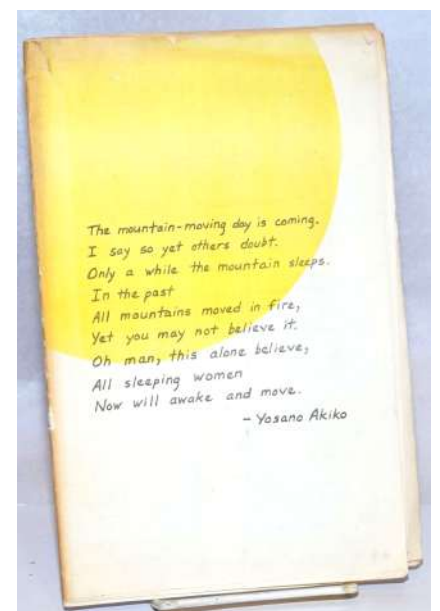 The mountain-moving day is coming.
I say so yet others doubt.
Only a while the mountain sleeps.
In the past
All mountains moved in fire,
Yet you may not believe it.
Oh man, this alone believe,
All sleeping women
Now will awake and move.
- Yosano Akiko